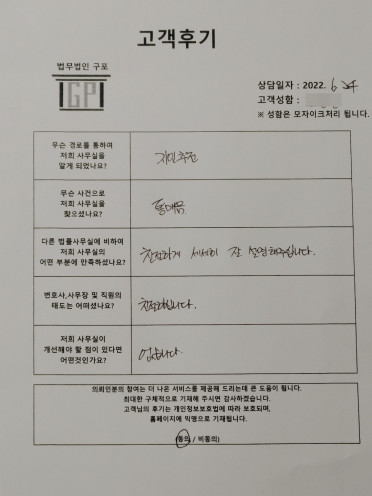 고객후기
법무법인 구포
GP
상담일자 : 2022. 6
고객성함 :
※ 성함은 모자이크처리 됩니다.
무슨 경로를 통하여
저희 사무실을
알게 되었나요?
지인추천
무슨 사건으로
저희 사무실을
찾으셨나요?
다른 법률사무실에 비하여
저희 사무실의
어떤 부분에 만족하셨나요?
친절하게 세세히 잘 설명해주십니다.
변호사,사무장 및 직원의
태도는 어떠셨나요?
친절하십니다.
저희 사무실이
개선해야 할 점이 있다면
어떤것인가요?
없습니다
의뢰인분의 참여는 더 나은 서비스를 제공해 드리는데 큰 도움이 됩니다.
최대한 구체적으로 기재해 주시면 감사하겠습니다.
고객님의 후기는 개인정보보호법에 따라 보호되며,
홈페이지에 익명으로 기재됩니다.
(동의 / 비동의)